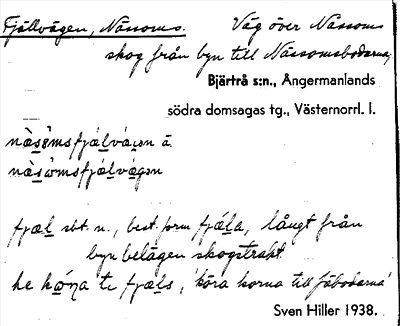 Fjällvägen, Nässoms. Väg över Nässoms
skog från byn till Nässomsbodarna,
Bjärtrå s:n., Ångermanlands
södra domsagas tg., Västernorrl. l.
fjæl sbt. n., best. form fjæla, långt från
byn belägen skogstrakt.
te fjæls, 'köra korna till fäbodarna'
Sven Hiller 1938.